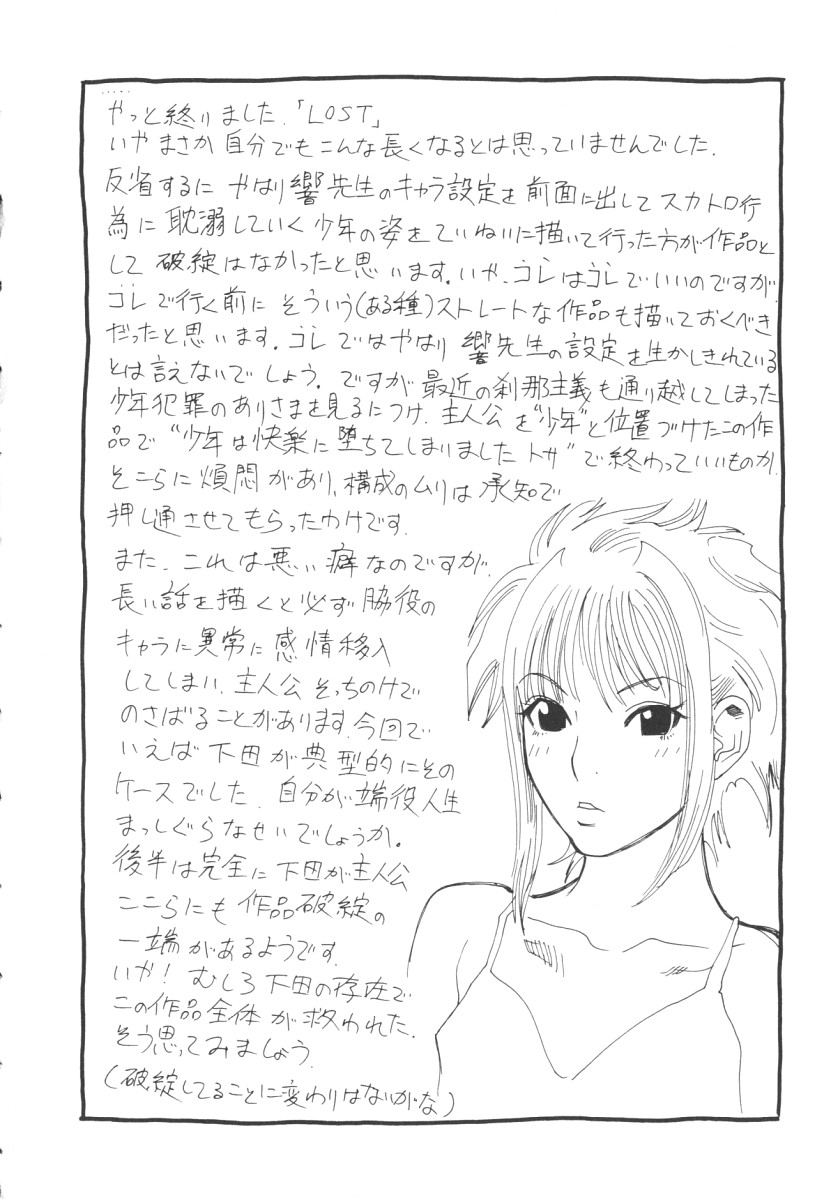 やっと終りました.「LOST」
いやまさか自分でもこんな長くなるとは思っていませんでした.
反省するに やはり響先生のキャラ設定を前面に出してスカトロ行
為に耽溺していく少年の姿をていねいに描いて行った方が作品と
して破綻はなかったと思います.いや、コレはコレでいいのですが
コレで行く前に そういう(ある種)ストレートな作品も描いておくべき
だったと思います.コレではやはり 響先生の設定を生かしきれている
とは言えないでしょう.ですが最近の刹那主義も通り越してしまった
少年犯罪のありさまを見るにつけ.主人公を“少年”と位置づけたこの作
品で“少年は快楽に堕ちてしまいました トサ”で終わっていいものか.
そこらに煩悶があり、構成のムリは承知で
押し通させてもらったわけです.
また、これは悪い癖なのですが
長い話を描くと必ず脇役の
キャラに異常に感情移入
してしまい.主人公そっちのけで
のさばることがあります.今回で
いえば下田が典型的にその
ケースでした.自分が端役人生
まっしぐらなせいでしょうか。
後半は完全に下田が主人公
ここらにも作品破綻の
一端があるようです.
いや!むしろ下田の存在で
この作品全体が救われた.
そう思ってみましょう.
(破綻してることに変わりはないがな)